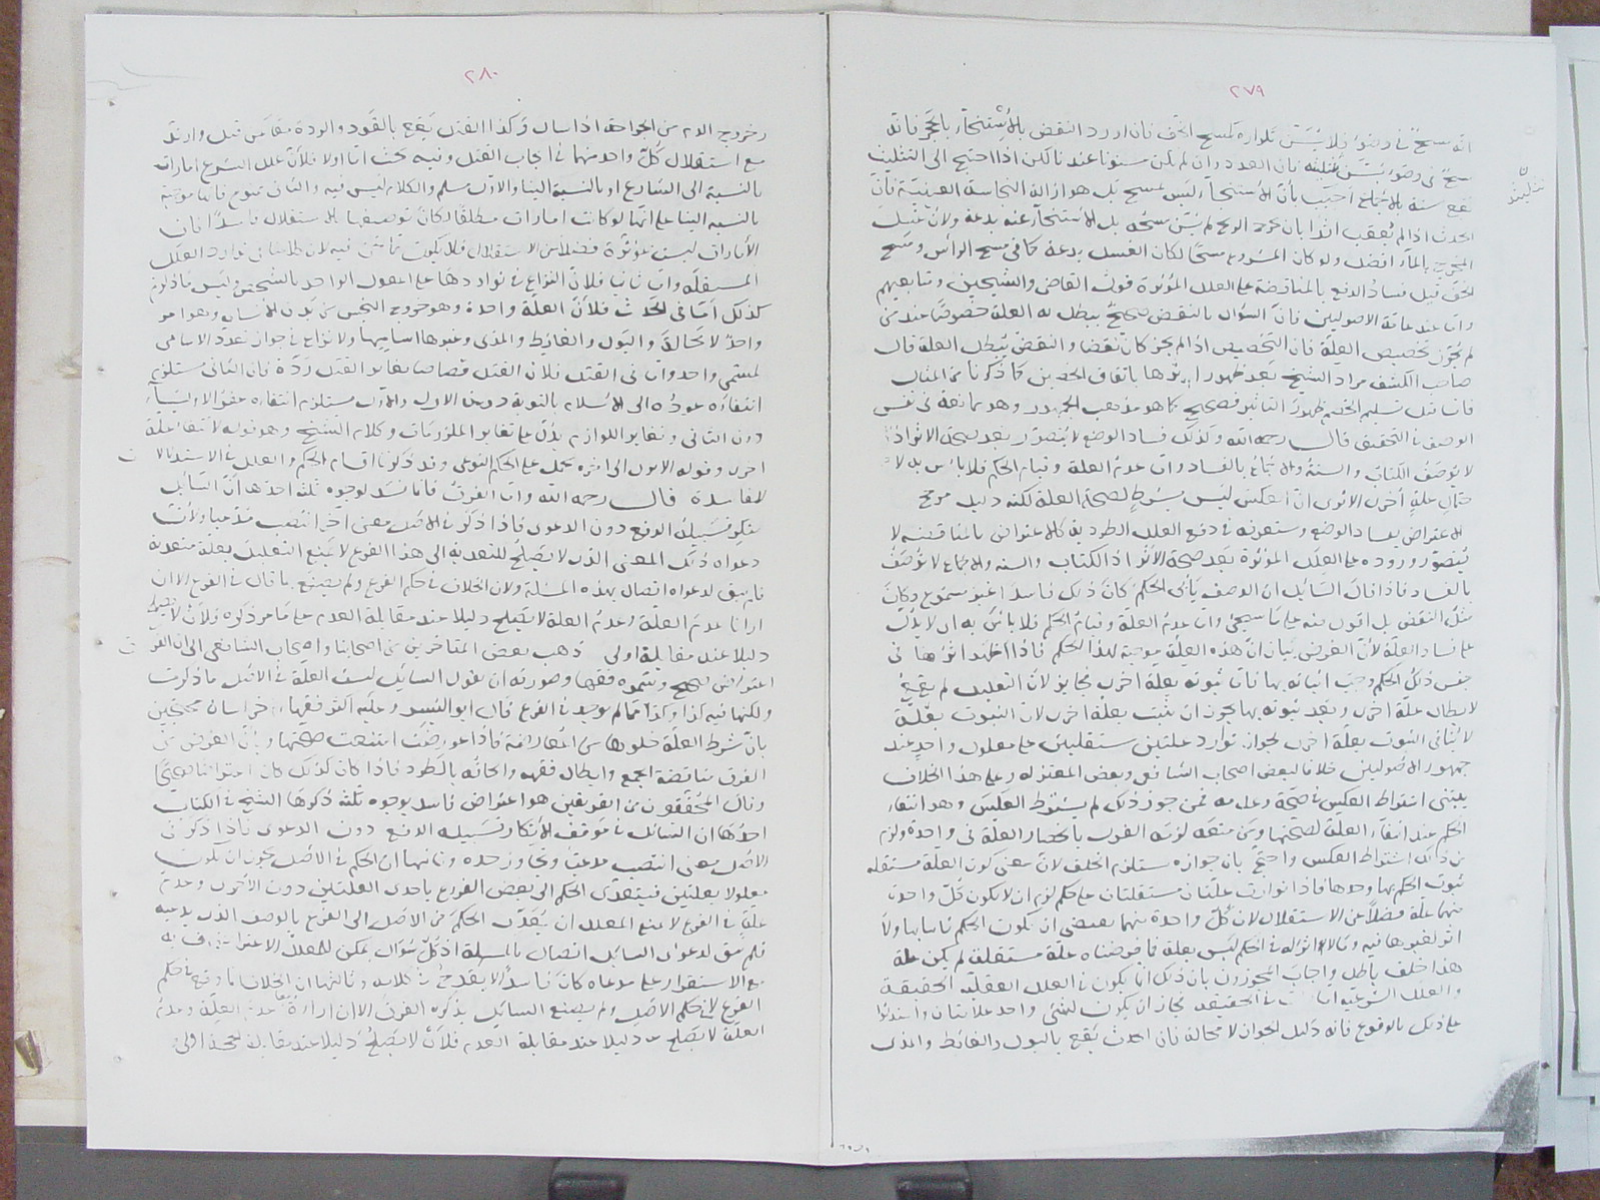 ٢٧٩
انه مسح في وضوء فلا يسن تكراره كمسح الخف فان اورد النقض بالاستنجاء بالحجر فانه
مسح في وضوء يسن تثليثه فان العدد وان لم يكن مسنونا عندنا لكن اذا احتيج الى التثليث
يقع سنة بالاجماع اجيب بأن الاستنجاء ليس بمسح بل هو ازالة النجاسة العينية فان
الحدث اذا لم يعقب اثرا بان خرج الريح لم يسن مسحه بل الاستنجاء عنه بدعة ولان غسل
المخرج بالماء افضل ولو كان المشروع مسحا لكان الغسل بدعة كما في مسح الرأس ومسح
الخف قيل فساد الدفع بالمناقضة على العلل المؤثرة قول القاضي والشيخين ومتابعيهم
واما عند عامة الاصوليين فان السؤال بالنقض صحيح يبطل به العلة خصوصا عند من
لم يجوز تخصيص العلة فان التخصيص اذا لم يجز كان نقضا والنقض يبطل العلة قال
صاحب الكشف مراد الشيخ بعد ظهور اثرها باتفاق الخصمين كما ذكرنا من المثال
فاما قبل تسليم الخصم ظهور التأثير فصحيح كما هو مذهب الجمهور وهو ممانعة في نفس
الوصف في التحقيق قال رحمه الله وكذلك فساد الوضع لا يتصور بعد صحة الاثر اذ
لا يوصف الكتاب والسنة والاجماع بالفساد واما عدم العلة وقيام الحكم فلا بأس به لا
حتمال علة اخرى الا ترى ان العكس ليس بشرط لصحة العلة لكنه دليل مرجح
الاعتراض بفساد الوضع وستعرفه في دفع العلل الطردية كالاعتراض بالمناقضة لا
يتصور وروده على العلل المؤثرة بعد صحة الاثر اذ الكتاب والسنة والاجماع لا توصف
بالفساد فاذا قال السائل ان الوصف يأبى الحكم كان ذلك فاسدا غير مسموع وكان
مثل النقض بل اقوى منه على ما سيجئ واما عدم العلة وقيام الحكم فلا بأس به اي لا يدل
على فساد العلة لأن الغرض بيان ان هذه العلة موجبة لهذا الحكم فاذا اظهر اثرها في
جنس ذلك الحكم وجب اثباته بها فان ثبوته بعلة اخرى مجاوز لان التعليل لم يقع
لابطال علة اخرى وبعد ثبوته بها يجوز ان يثبت بعلة اخرى لان الثبوت بعلة
لا ينافي الثبوت بعلة اخرى لجواز توارد علتين مستقلتين على معلول واحد عند
جمهور الاصوليين خلافا لبعض اصحاب الشافعي وبعض المعتزلة وعلى هذا الخلاف
يبتني اشتراط العكس في صحة وعدمه فمن جوز ذلك لم يشترط العكس وهو انتفاء
الحكم عند انتفاء العلة لصحتها ومن منعه لزمه القول بانحصار العلة في واحدة ولزم
من ذلك اشتراط العكس واحتج بان جوازه مستلزم الخلف لان معنى كون العلة مستقلة
ثبوت الحكم بها وحدها فاذا تواردت علتان مستقلتان على حكم لزم ان لا يكون كل واحدة
منهما علة فضلا عن الاستقلال لان كل واحدة منهما يقتضي ان يكون الحكم ثابتا بها ولا
اثر لغيرها فيه وما لا اثر له في الحكم ليس بعلة فما فرضناه علة مستقلة لم يكن علة
هذا خلف باطل واجاب المجوزون بان ذلك انما يكون في العلل العقلية الحقيقية
والعلل الشرعية امارات في الحقيقة فجاز ان يكون لشئ واحد علامتان واستدلوا
على ذلك بالوقوع فانه دليل الجواز لا محالة فان الحدث يقع بالبول والغائط والمذي
٢٨٠
وخروج الدم من الجراحة اذا سال وكذا القتل يقع بالقود والردة فيمن قتل وارتد
مع استقلال كل واحد منهما في ايجاب القتل وفيه بحث اما اولا فلان علل الشرع امارات
بالنسبة الى الشارع او بالنسبة الينا والاول مسلم والكلام ليس فيه والثاني ممنوع فانها مؤثرة
بالنسبة الينا على انها لو كانت امارات مطلقا لكان توصيفها بالاستقلال فاسدا فان
الامارات ليست بمؤثرة فضلا عن الاستقلال فلا يكون مما نحن فيه لان كلامنا في توارد العلل
المستقلة واما ثانيا فلان النزاع في تواردها على المعلول الواحد بالشخص وليس ما ذكرتم
كذلك اما في الحدث فلان العلة واحدة وهو خروج النجس من بدن الانسان وهو امر
واحد لا محالة والبول والغائط والمذي وغيرها اسبابها ولا نزاع في جواز تعدد الاسامي
لمسمى واحد واما في القتل فلان القتل قصاصا يغاير القتل ردة فان الثاني مستلزم
انتفاؤه عوده الى الاسلام بالتوبة دون الاول والاول مستلزم انتفاؤه عفو الاولياء
دون الثاني وتغاير اللوازم يدل على تغاير الملزومات وكلام الشيخ وهو قوله لاحتمال علة
اخرى وقوله الا ترى الى اخره يحمل على الحكم النوعي وقد ذكرنا اقسام الحكم والعلل في الاستدلالات
الفاسدة قال رحمه الله واما الفرق فانما فسد لوجوه ثلثة احدها ان السائل
منكر فسبيله الدفع دون الدعوى فاذا ذكر في الاصل معنى اخر انتصب مدعيا ولأنه
دعواه ذلك المعنى الذي لا يصلح للتعدية الى هذا الفرع لا يمنع التعليل بعلة متعدية
فلم يبق لدعواه اتصال بهذه المسئلة ولان الخلاف في حكم الفرع ولم يصنع بما قال في الفرع الا ان
ارانا عدم العلة وعدم العلة لا يصلح دليلا عند مقابلة العدم على ما مر ذكره فلان لا يصلح
دليلا عند مقابلة اولى ذهب بعض المتأخرين من اصحابنا واصحاب الشافعي الى ان الفرق
اعتراض صحيح وسموه فقها وصورته ان يقول السائل ليست العلة في الاصل ما ذكرت
ولكنها فيه كذا وكذا مما لم يوجد في الفرع قال ابو اليسر وعليه اكثر فقهاء خراسان محتجين
بان شرط العلة خلوها عن المعارضة فاذا عورضت امتنعت صحتها وبان الغرض من
الفرق مناقضة الجمع وابطال فقهه والحاقه بالطرد فاذا كان كذلك كان اعتراضا صحيحا
وقال المحققون من الفريقين هو اعتراض فاسد لوجوه ثلثة ذكرها الشيخ في الكتاب
احدها ان السائل في موقف الانكار فسبيله الدفع دون الدعوى فاذا ذكر في
الاصل معنى انتصب مدعيا وتجاوز حده وثانيها ان الحكم في الاصل يجوز ان يكون
معلولا بعلتين فيتعدى الحكم الى بعض الفروع باحدى العلتين دون الاخرى وعدم
علة في الفرع لا يمنع المعلل ان يعدي الحكم من الاصل الى الفرع بالوصف الذي يدعيه
فلم يبق لدعوى السائل اتصال بالمسئلة اذ كل سؤال يمكن للمعلل الاعتراف به
مع الاستقرار على مدعاه كان فاسدا لا يقدح في كلامه وثالثها ان الخلاف ما وقع في حكم
الفرع لا في حكم الاصل ولم يصنع السائل بذكره الفرق الا ان اراءة عدم العلة وعدم
العلة لا يصلح دليلا عند مقابلة العدم فلأن لا يصلح دليلا عند مقابلة الحجة اولى